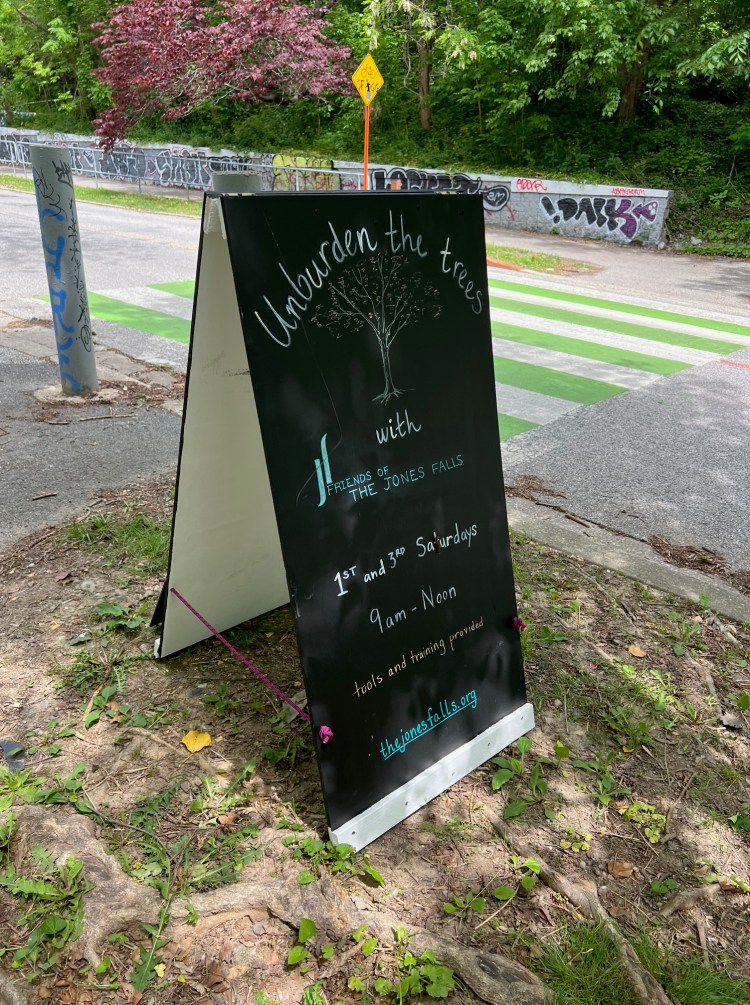 Unburden the trees
with
FRIENDS OF
THE JONES FALLS
1ST and 3RD Saturdays
9am - Noon
tools and training provided
thejonesfalls.org